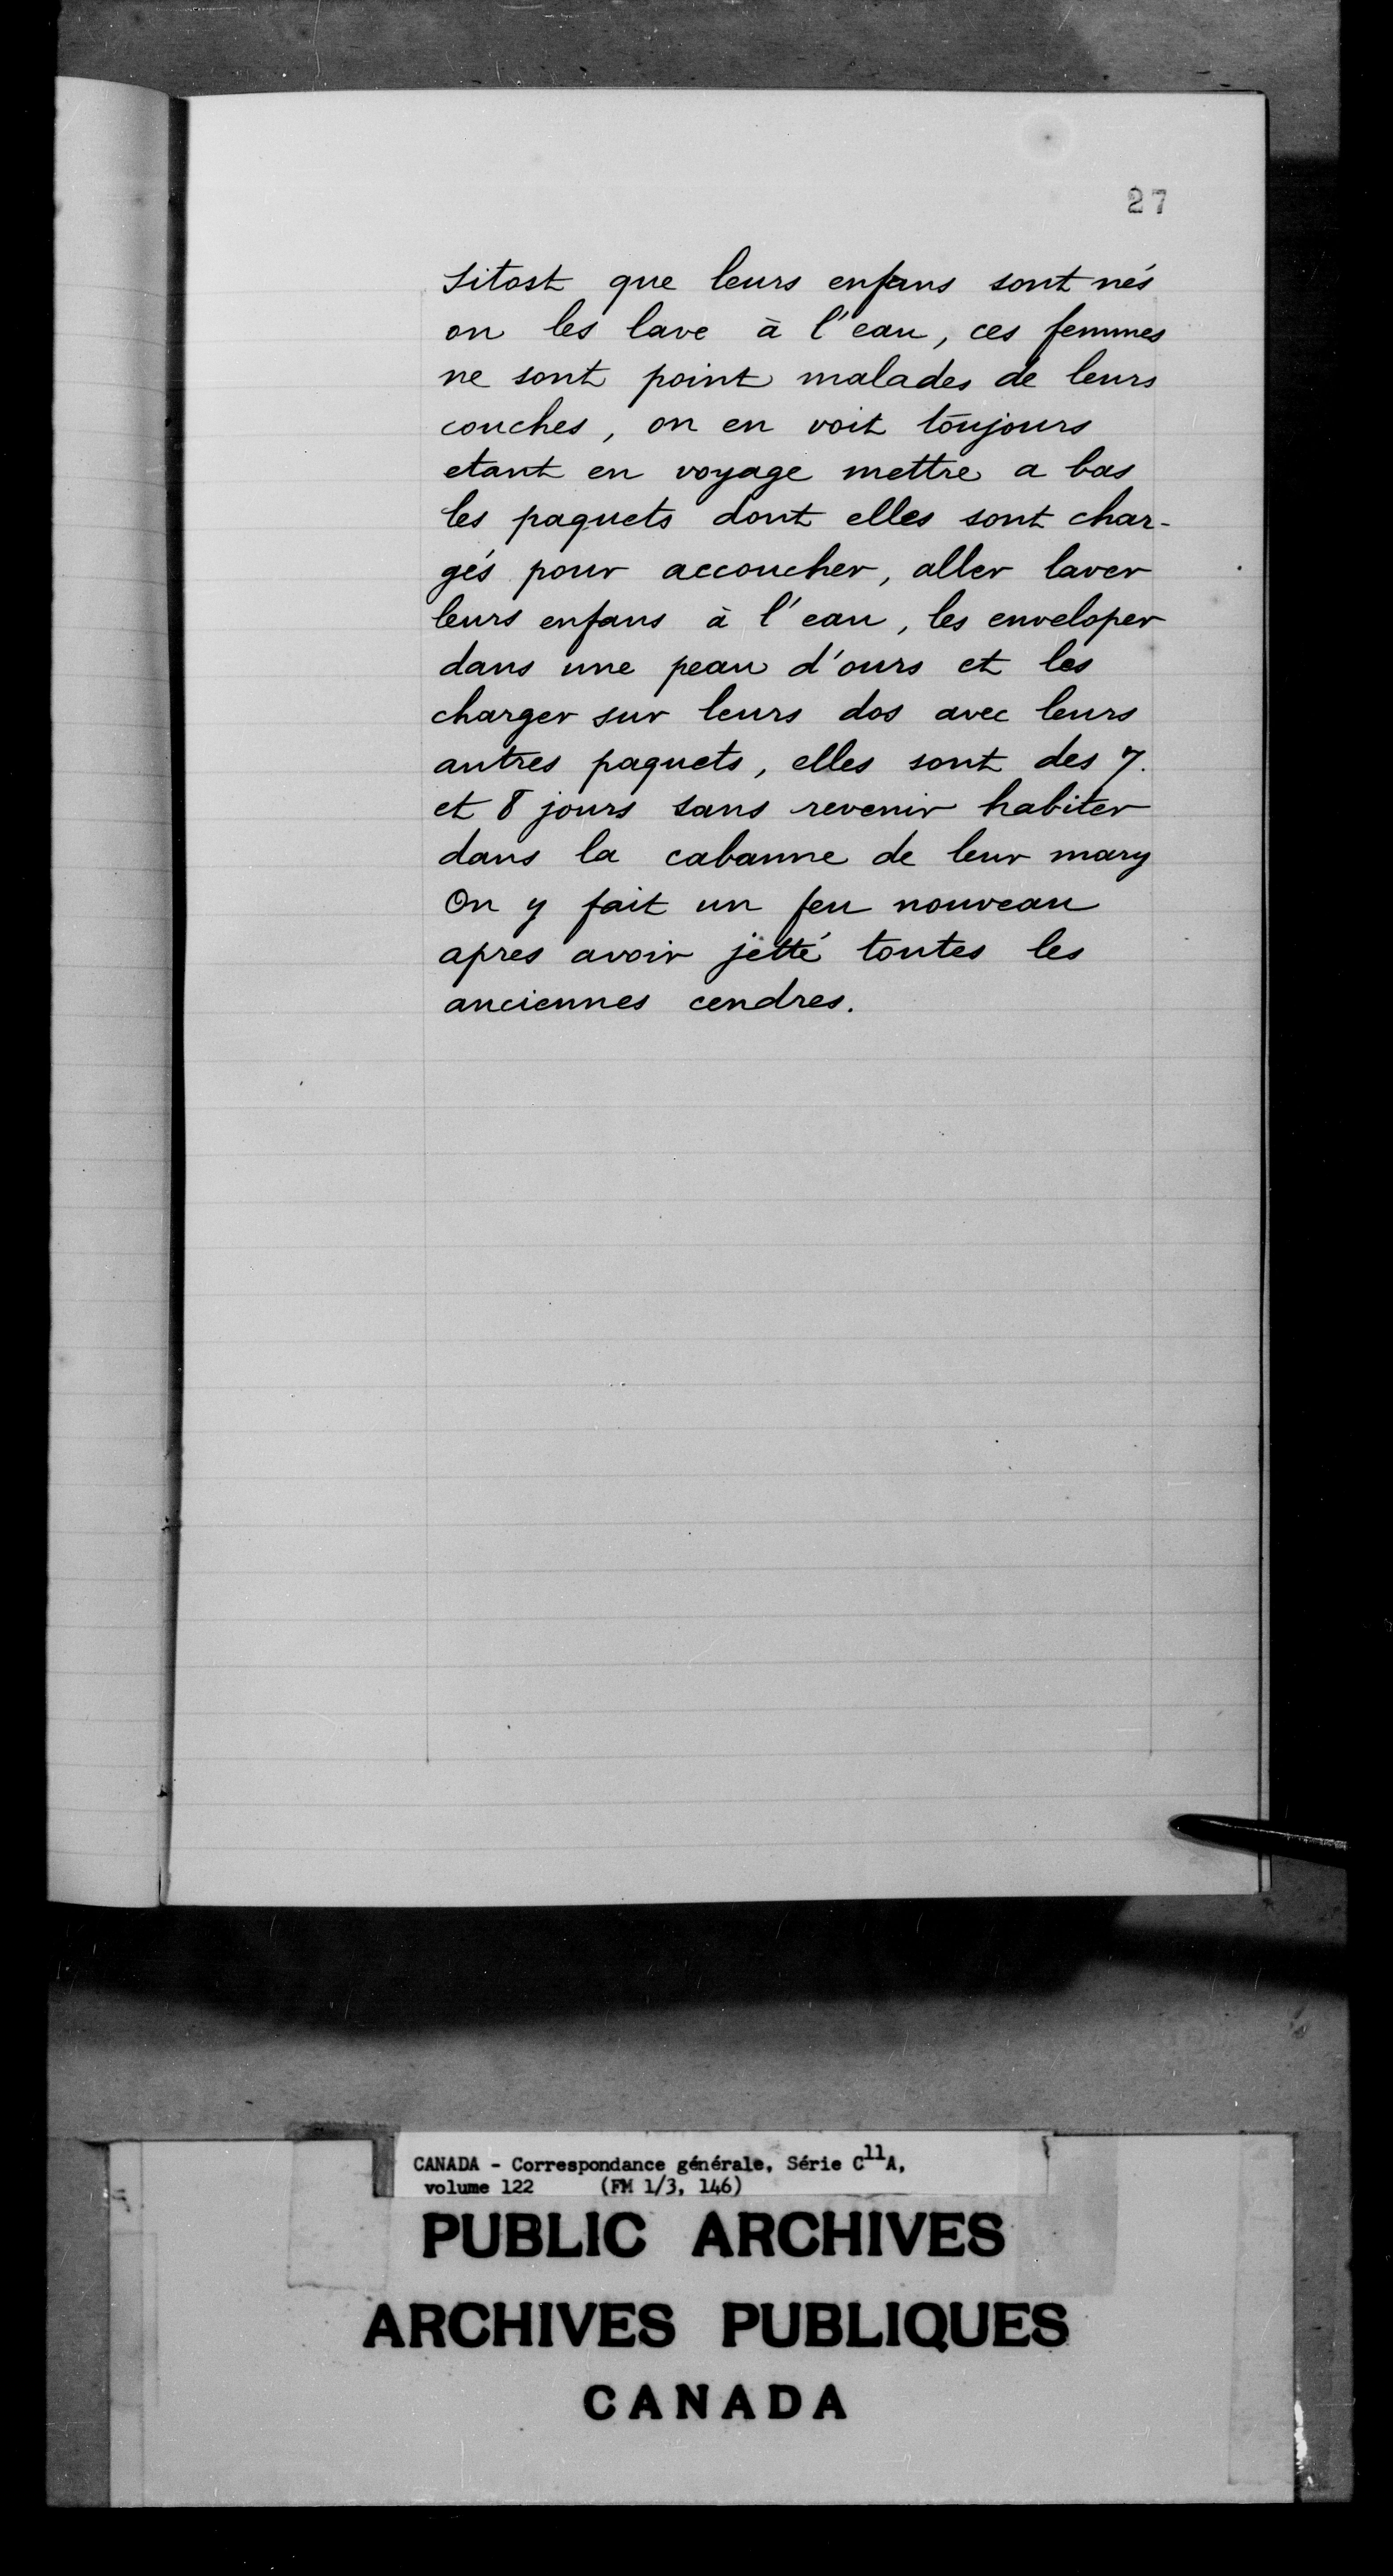 27
Sitost que leurs enfans sont nés
on les lave à l'eau, ces femmes
ne sont point malades de leurs
couches, on en voit toujours
etant en voyage mettre a bas
les paquets dont elles sont char-
gés pour accoucher, aller laver
leurs enfans à l'eau, les enveloper
dans une peau d'ours et les
charger sur leurs dos avec leurs
autres paquets, elles sont des 7.
et 8 jours sans revenir habiter
dans la cabanne de leur mary
On y fait un feu nouveau
apres avoir jetté toutes les
anciennes cendres.
CANADA - Correspondance générale, Série C11A,
volume 122 (FM 1/3, 146)
PUBLIC ARCHIVES
ARCHIVES PUBLIQUES
CANADA